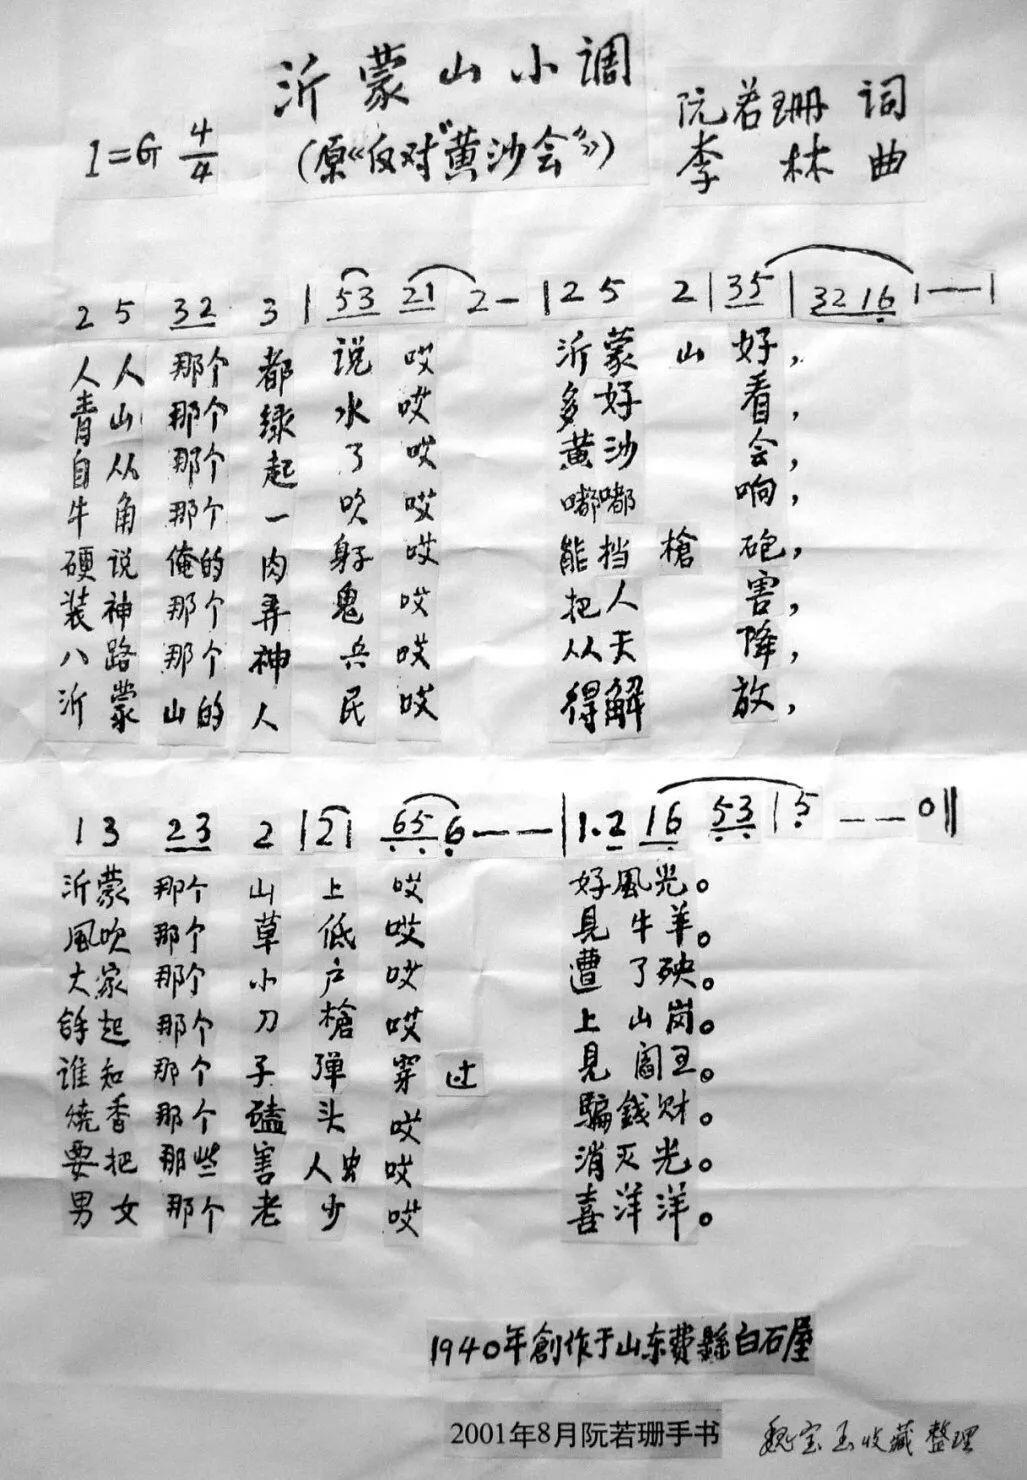 沂蒙山小调
(原《反对"黄沙会"》)
1=G 4/4
阮若珊 词
李林 曲
2 5 32 3 | 53 21 2 — | 2 5 2 | 35 | 32 16 | 1 — — |
人人那个都说哎 沂蒙山好，
青山那个绿水哎 多好看，
自从那个起了哎 黄沙会，
牛角那个一吹哎 嘟嘟响，
硬说俺的肉身子哎 能挡槍砲，
装神那个弄鬼哎 把人害，
八路那个神兵哎 从天降，
沂蒙山的人民哎 得解放，
1 3 23 2 | 21 65 6 — — | 1.2 16 53 | 5 — — 0 ‖
沂蒙那个山上哎 好風光。
風吹那个草低哎 見牛羊。
大家那个小户哎 遭了殃。
拿起那个刀槍哎 上山岗。
谁知那个子弹穿过 見閻王。
燒香那个磕头哎 騙錢财。
要把那些害人虫哎 消灭光。
男女那个老少哎 喜洋洋。
1940年創作于山东費縣白石屋
2001年8月阮若珊手书
魏宝玉收藏整理